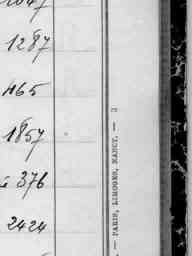 1287
465
1857
376
2424
— PARIS, LIMOGES, NANCY. —